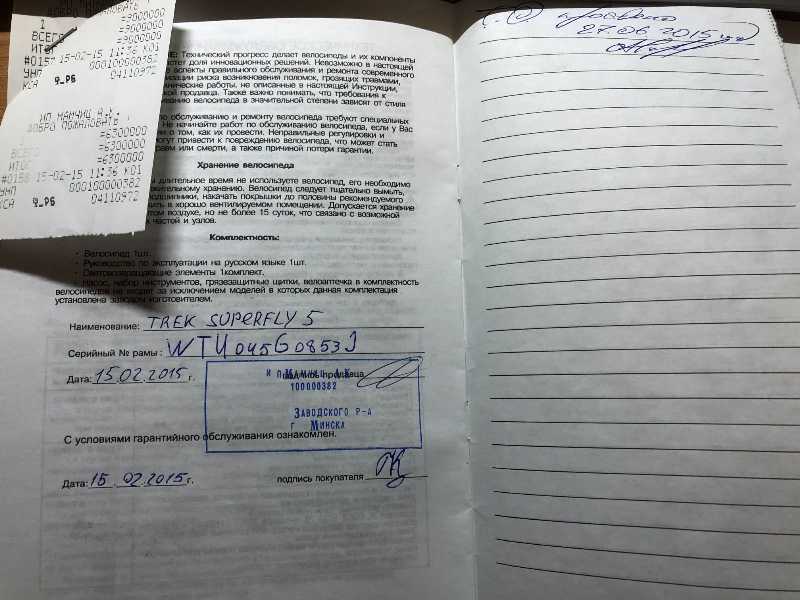 ДОБРО ПОЖАЛОВАТЬ
1 =3000000
=3000000
ВСЕГО =3000000
ИТОГ
#0157 15-02-15 11:36 К01
УНП 000100000382
КСА Ч_РБ 04110972
ИП МАНЧИЦ А.К.
ДОБРО ПОЖАЛОВАТЬ
=6300000
=6300000
ВСЕГО =6300000
ИТОГ
#0158 15-02-15 11:36 К01
УНП 000100000382
КСА Ч_РБ 04110972
Технический прогресс делает велосипеды и их компоненты
доля инновационных решений. Невозможно в настоящей
аспекты правильного обслуживания и ремонта современного
риска возникновения поломок, грозящих травмами,
работы, не описанные в настоящей Инструкции,
продавца. Также важно понимать, что требования к
велосипеда в значительной степени зависят от стиля
по обслуживанию и ремонту велосипеда требуют специальных
Не начинайте работ по обслуживанию велосипеда, если у Вас
о том, как их провести. Неправильные регулировки и
могут привести к повреждению велосипеда, что может стать
или смерти, а также причиной потери гарантии.
Хранение велосипеда
длительное время не используете велосипед, его необходимо
хранению. Велосипед следует тщательно вымыть,
накачать покрышки до половины рекомендуемого
в хорошо вентилируемом помещении. Допускается хранение
воздухе, но не более 15 суток, что связано с возможной
частей и узлов.
Комплектность:
- Велосипед 1шт.
- Руководство по эксплуатации на русском языке 1шт.
- Световозвращающие элементы 1комплект.
- Насос, набор инструментов, грязезащитные щитки, велоаптечка в комплектность
велосипедов не входят за исключением моделей в которых данная комплектация
установлена заводом изготовителем.
Наименование: TREK SUPERFLY 5
Серийный № рамы: WTU045G0853J
Дата: 15.02.2015 г. подпись продавца
100000382
ЗАВОДСКОГО Р-А
г МИНСКА
С условиями гарантийного обслуживания ознакомлен.
Дата: 15.02.2015 г. подпись покупателя
27.06.2015